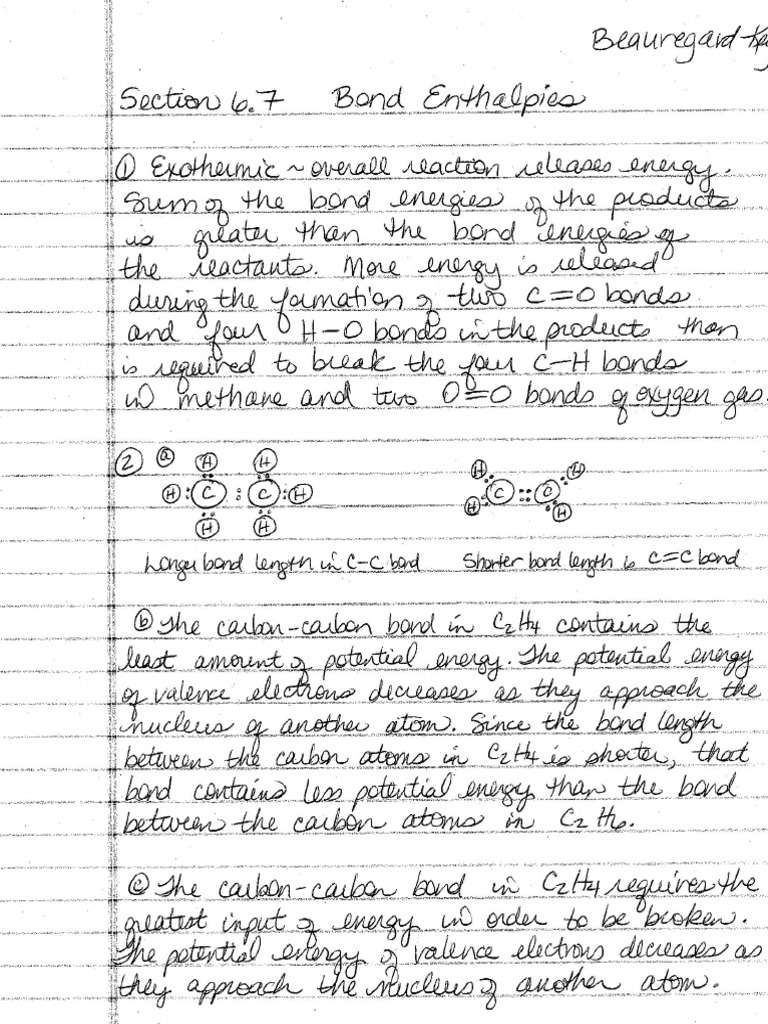 Beauregard-Key
Section 6.7 Bond Enthalpies
① Exothermic ~ overall reaction releases energy.
Sum of the bond energies of the products
is greater than the bond energies of
the reactants. More energy is released
during the formation of two C=O bonds
and four H-O bonds in the products than
is required to break the four C-H bonds
in methane and two O=O bonds of oxygen gas.
② ⓐ H H H H
H : C : C : H C :: C
H H H H
Longer bond length in C-C bond Shorter bond length is C=C bond
ⓑ The carbon-carbon bond in C₂H₄ contains the
least amount of potential energy. The potential energy
of valence electrons decreases as they approach the
nucleus of another atom. Since the bond length
between the carbon atoms in C₂H₄ is shorter, that
bond contains less potential energy than the bond
between the carbon atoms in C₂H₆.
ⓒ The carbon-carbon bond in C₂H₄ requires the
greatest input of energy in order to be broken.
The potential energy of valence electrons decreases as
they approach the nucleus of another atom.